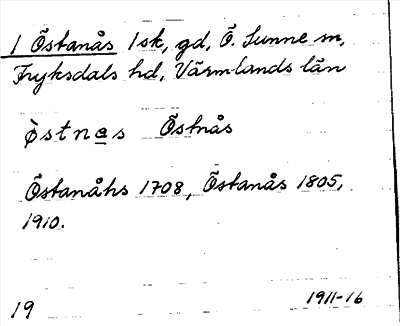 1 Östanås 1sk, gd, Ö. Sunne sn,
Fryksdals hd, Värmlands län
østnas Östnås
Östanåhs 1708, Östanås 1805,
1910.
19 1911-16